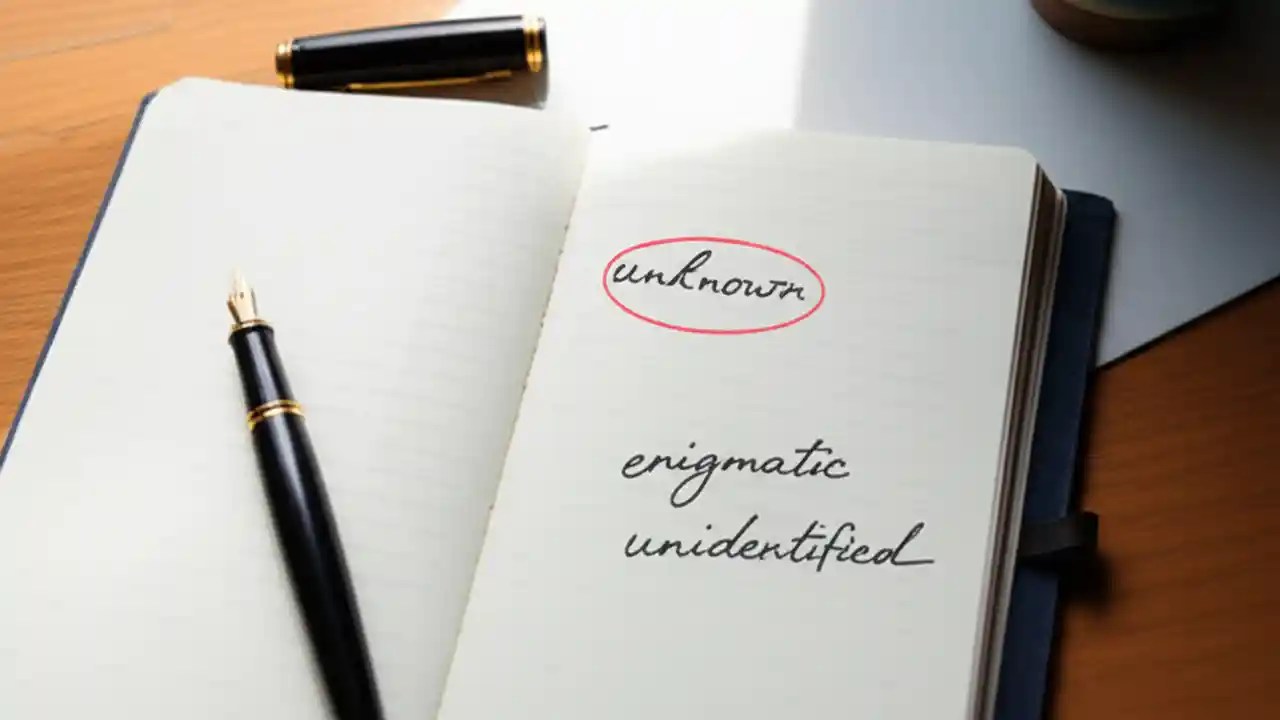 unknown
enigmatic
unidentified